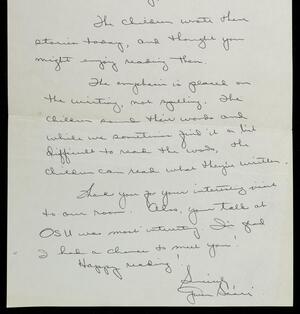 The children wrote these
stories today, and thought you
might enjoy reading them.
The emphasis is placed on
the writing, not spelling. The
children sound their words and
while we sometimes find it a bit
difficult to read the words, the
children can read what they've written.
Thank you for your interesting visit
to our room. Also, your talk at
OSU was most interesting. I'm glad
I had a chance to meet you.
Happy reading!
Sincerely,